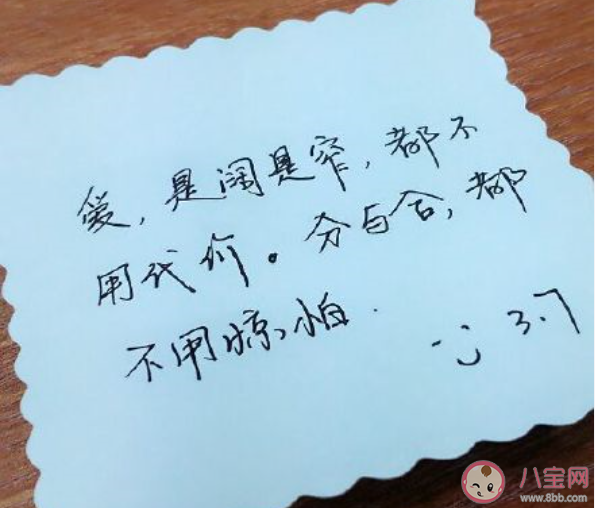 爱，是阔是窄，都不
用代价。分与合，都
不用惊怕.
:) 3.7
八宝网
www.8bb.com